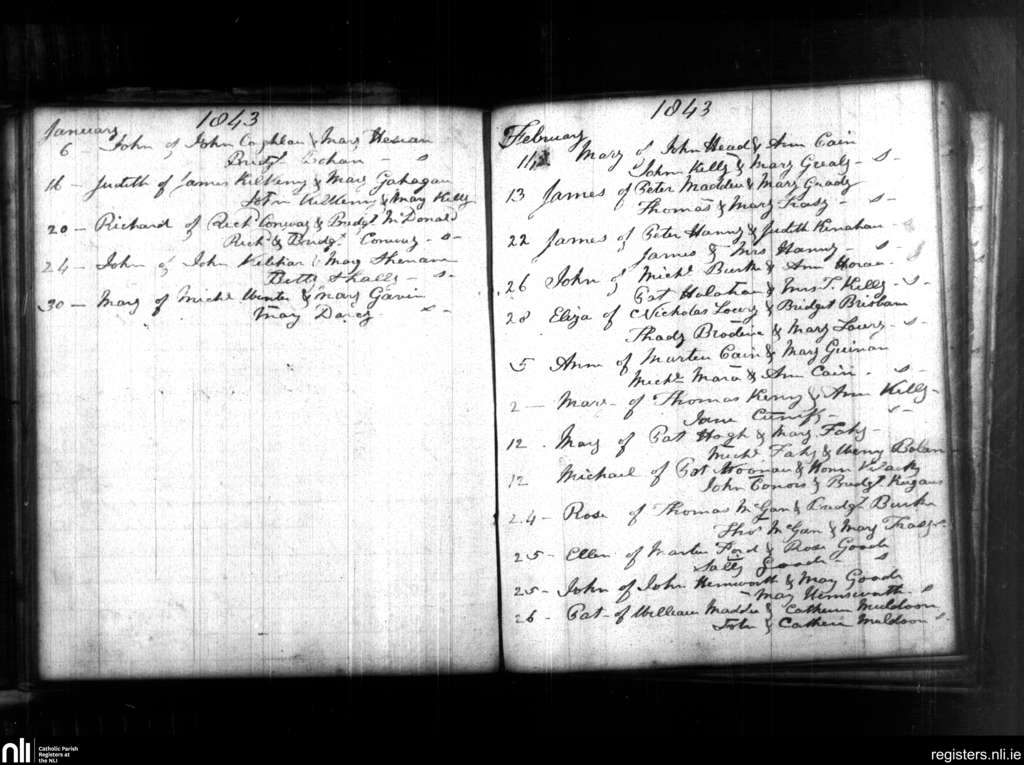 1843
January
6 John of John Coghlan & Mary Hessian
Bridgt Bohan - s
16 - Judith of James Kilkenny & Mary Gahagan
John Kilkenny & Mary Kelly
20 - Richard of Richd Conway & Bridgt McDonald
Richd & Bridgt Conway - s -
24 - John of John & Mary
Betty Skally - s -
30 - Mary of Michl & Mary Gavin
Mary Darcy - s -
1843
February
11 Mary of John Head & Ann Cain
John Kelly & Mary Grealy - s -
13 James of Peter Madden & Mary Grady
Thomas & Mary - s -
22 James of Peter Hanny & Judith Kinahan
James & Mrs Hanny - s
26 John of Michl Burke & Ann Horan
Pat & Mrs T. Kelly - s -
28 Eliza of Nicholas Lowry & Bridget Brisbane
Thady & Mary Lowry - s -
5 Ann of Martin Cain & Mary Guinan
Michl Mara & Ann Cain - s
2 - of Thomas Kenny & Ann Kelly
Jane Cunniff - s -
12 - Mary of Pat Hogh & Mary Fahy -
Michl Fahy & Bolan
12 Michael of Pat & Honor
John Conors & Bridgt
24 - Rose of Thomas McGan & Bridgt Burke
Thos McGan & Mary
25 - Ellen of Martin Ford & Rose Goode
Sally Goode - s
25 - John of John Hemsworth & Mary Goode
Mary Hemsworth - s
26 - Pat of William Madden & Catherin Muldoon
John & Catherin Muldoon s
nli
Catholic Parish
Registers at
the NLI
registers.nli.ie